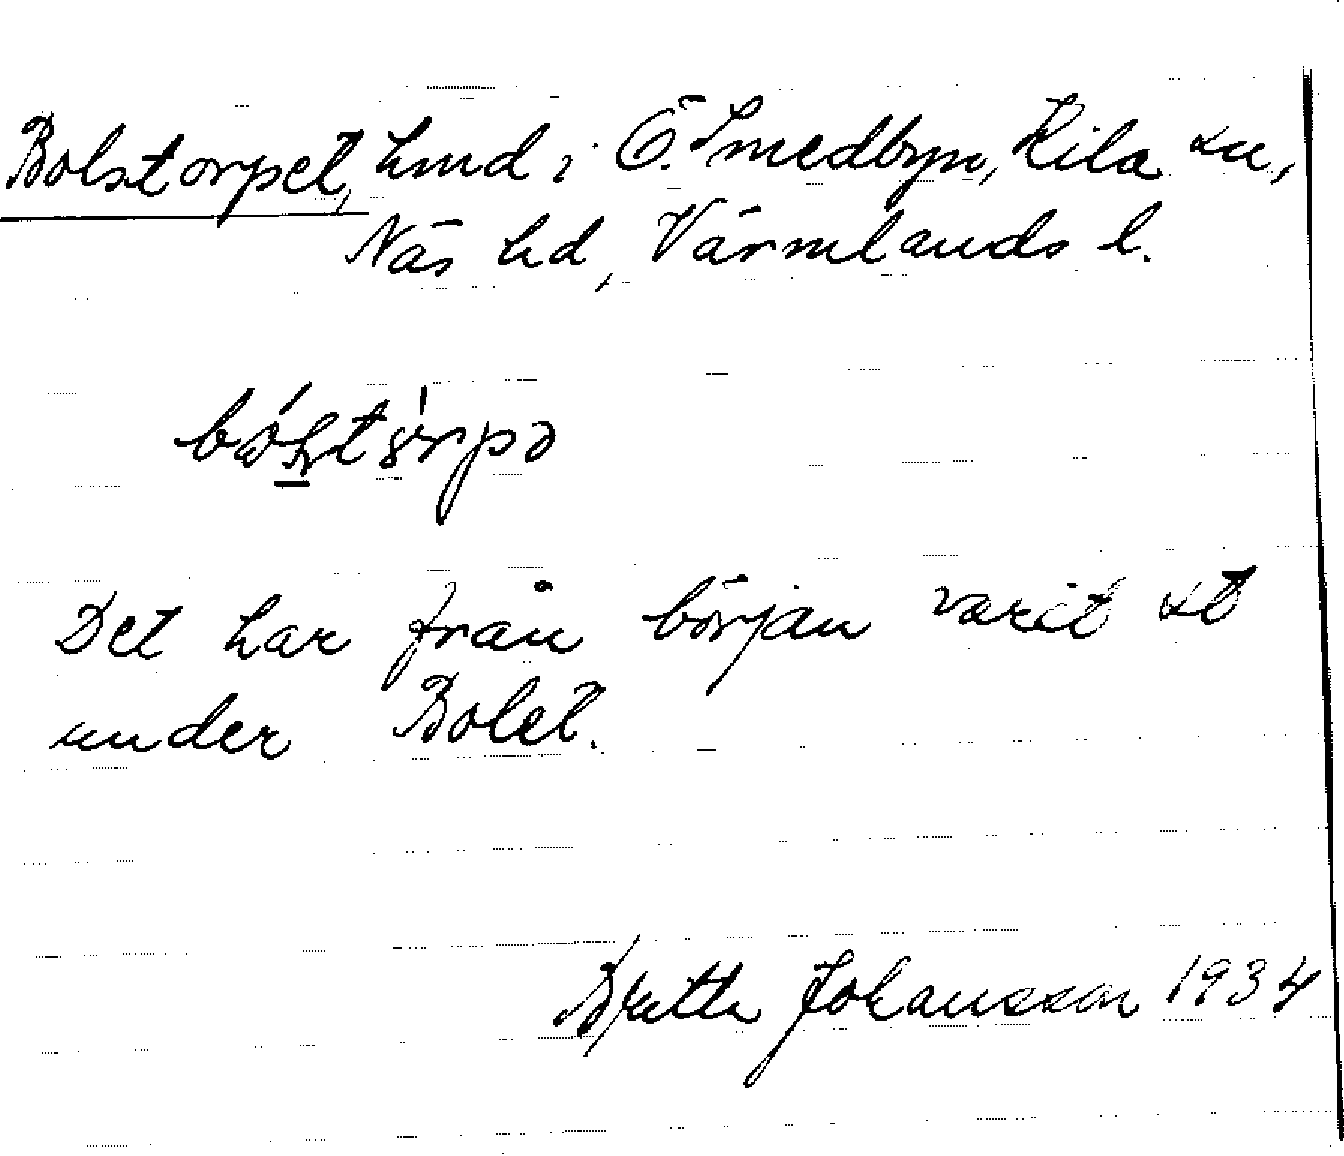 Bolstorpet, hmd i Ö. Smedbyn, Kila sn,
Näs hd, Värmlands l.
Det har från början varit st
under Bolet.
Britta Johansson 1934